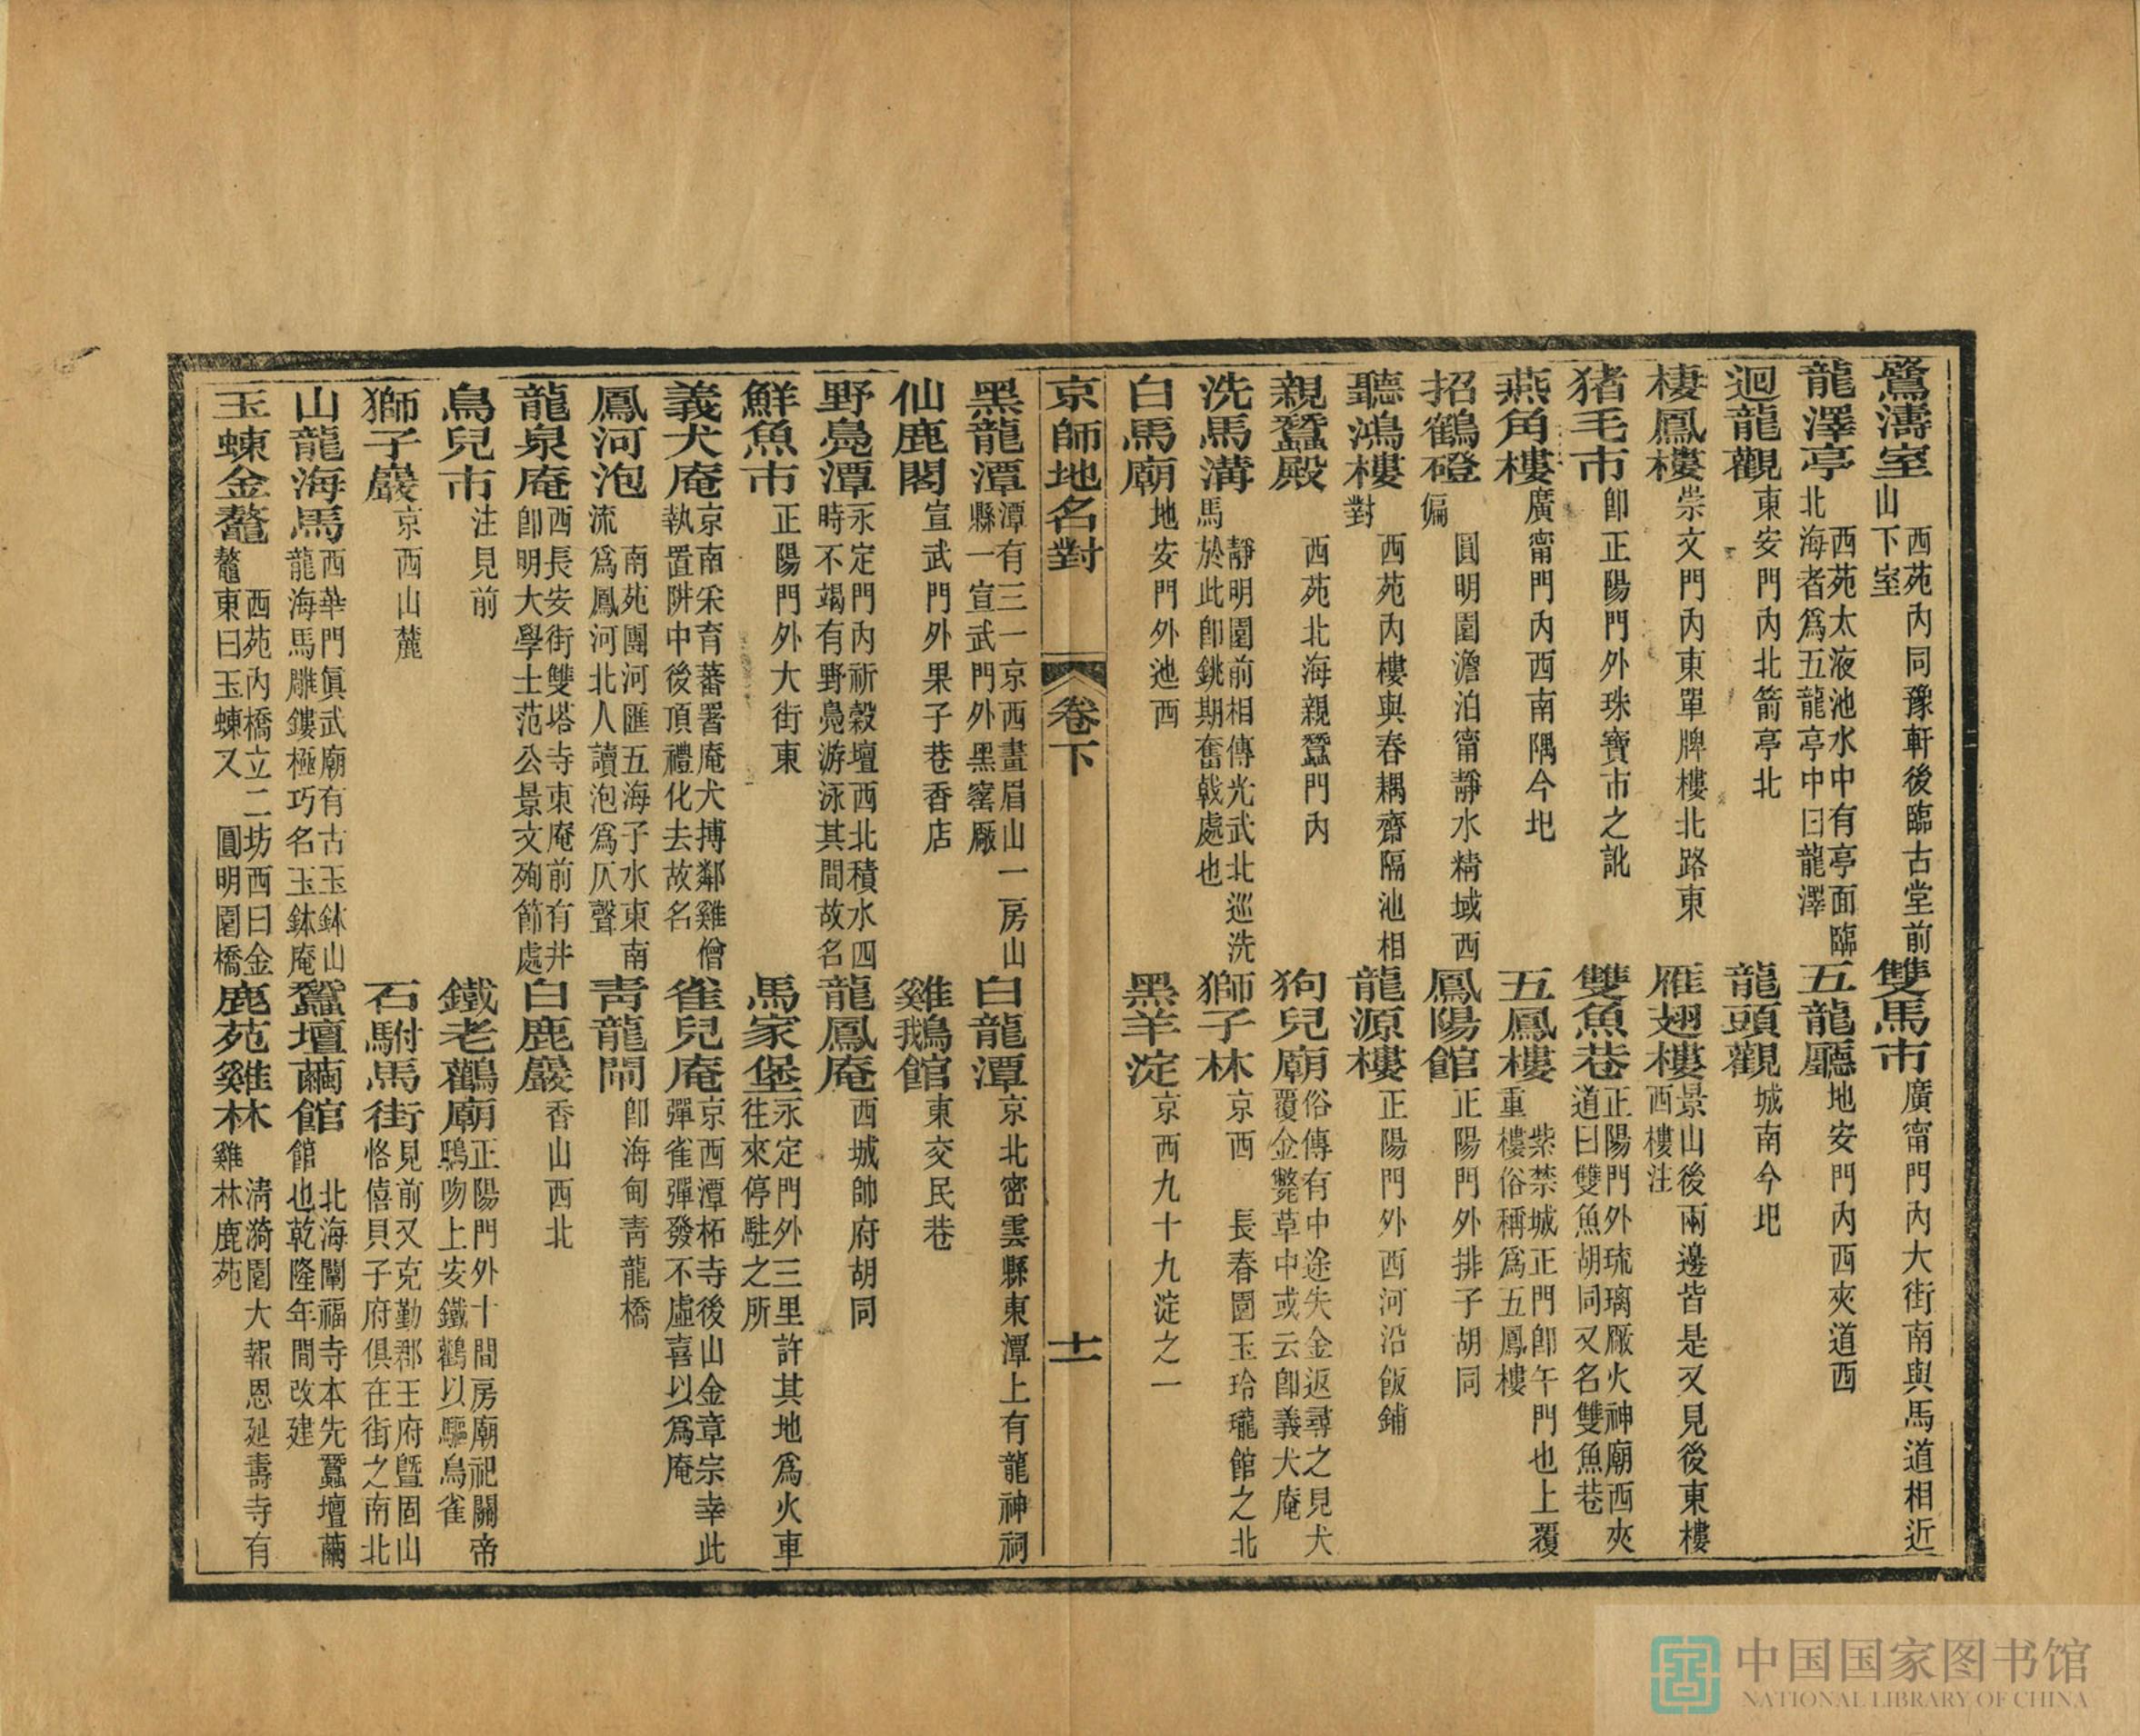 鷺濤室西苑內同豫軒後臨古堂前山下室 雙馬市廣甯門內大街南與馬道相近
龍澤亭西苑太液池水中有亭面臨北海者爲五龍亭中曰龍澤 五龍廳地安門內西夾道西
迴龍觀東安門內北箭亭北 龍頭觀城南今圯
棲鳳樓崇文門內東單牌樓北路東 雁翅樓景山後兩邊皆是又見後東樓西樓注
猪毛市卽正陽門外珠寶市之訛 雙魚巷正陽門外琉璃厰火神廟西夾道曰雙魚胡同又名雙魚巷
燕角樓廣甯門內西南隅今圯 五鳳樓紫禁城正門卽午門也上覆重樓俗稱爲五鳳樓
招鶴磴圓明園澹泊甯靜水精域西偏 鳳陽館正陽門外排子胡同
聽鴻樓西苑內樓與春耦齋隔池相對 龍源樓正陽門外西河沿飯鋪
親蠶殿西苑北海親蠶門內 狗兒廟俗傳有中途失金返尋之見犬覆金斃草中或云卽義犬庵
洗馬溝靜明園前相傳光武北巡洗馬於此卽銚期奮戟處也 獅子林京西 長春園玉玲瓏館之北
白馬廟地安門外池西 黑羊淀京西九十九淀之一
京師地名對 卷下 十一
黑龍潭潭有三一京西畫眉山一房山縣一宣武門外黑窰厰 白龍潭京北密雲縣東潭上有龍神祠
仙鹿閣宣武門外果子巷香店 雞鵝館東交民巷
野鳧潭永定門內祈穀壇西北積水四時不竭有野鳧游泳其間故名 龍鳳庵西城帥府胡同
鮮魚市正陽門外大街東 馬家堡永定門外三里許其地爲火車往來停駐之所
義犬庵京南采育蕃署庵犬搏鄰雞僧執置阱中後頂禮化去故名 雀兒庵京西潭柘寺後山金章宗幸此彈雀彈發不虛喜以爲庵
鳳河泡南苑團河匯五海子水東南流爲鳳河北人讀泡爲仄聲 靑龍鬧卽海甸靑龍橋
龍泉庵西長安街雙塔寺東庵前有井卽明大學士范公景文殉節處 白鹿巖香山西北
鳥兒市注見前 鐵老鸛廟正陽門外十間房廟祀關帝鴟吻上安鐵鸛以驅鳥雀
獅子巖京西山麓 石駙馬街見前又克勤郡王府曁固山恪僖貝子府俱在街之南北
山龍海馬西華門眞武廟有古玉鉢山龍海馬雕鏤極巧名玉鉢庵 蠶壇繭館北海闡福寺本先蠶壇繭館也乾隆年間改建
玉蝀金鼇西苑內橋立二坊西曰金鼇東曰玉蝀又 圓明園橋 鹿苑雞林淸漪園大報恩延壽寺有雞林鹿苑
中国国家图书馆
NATIONAL LIBRARY OF CHINA